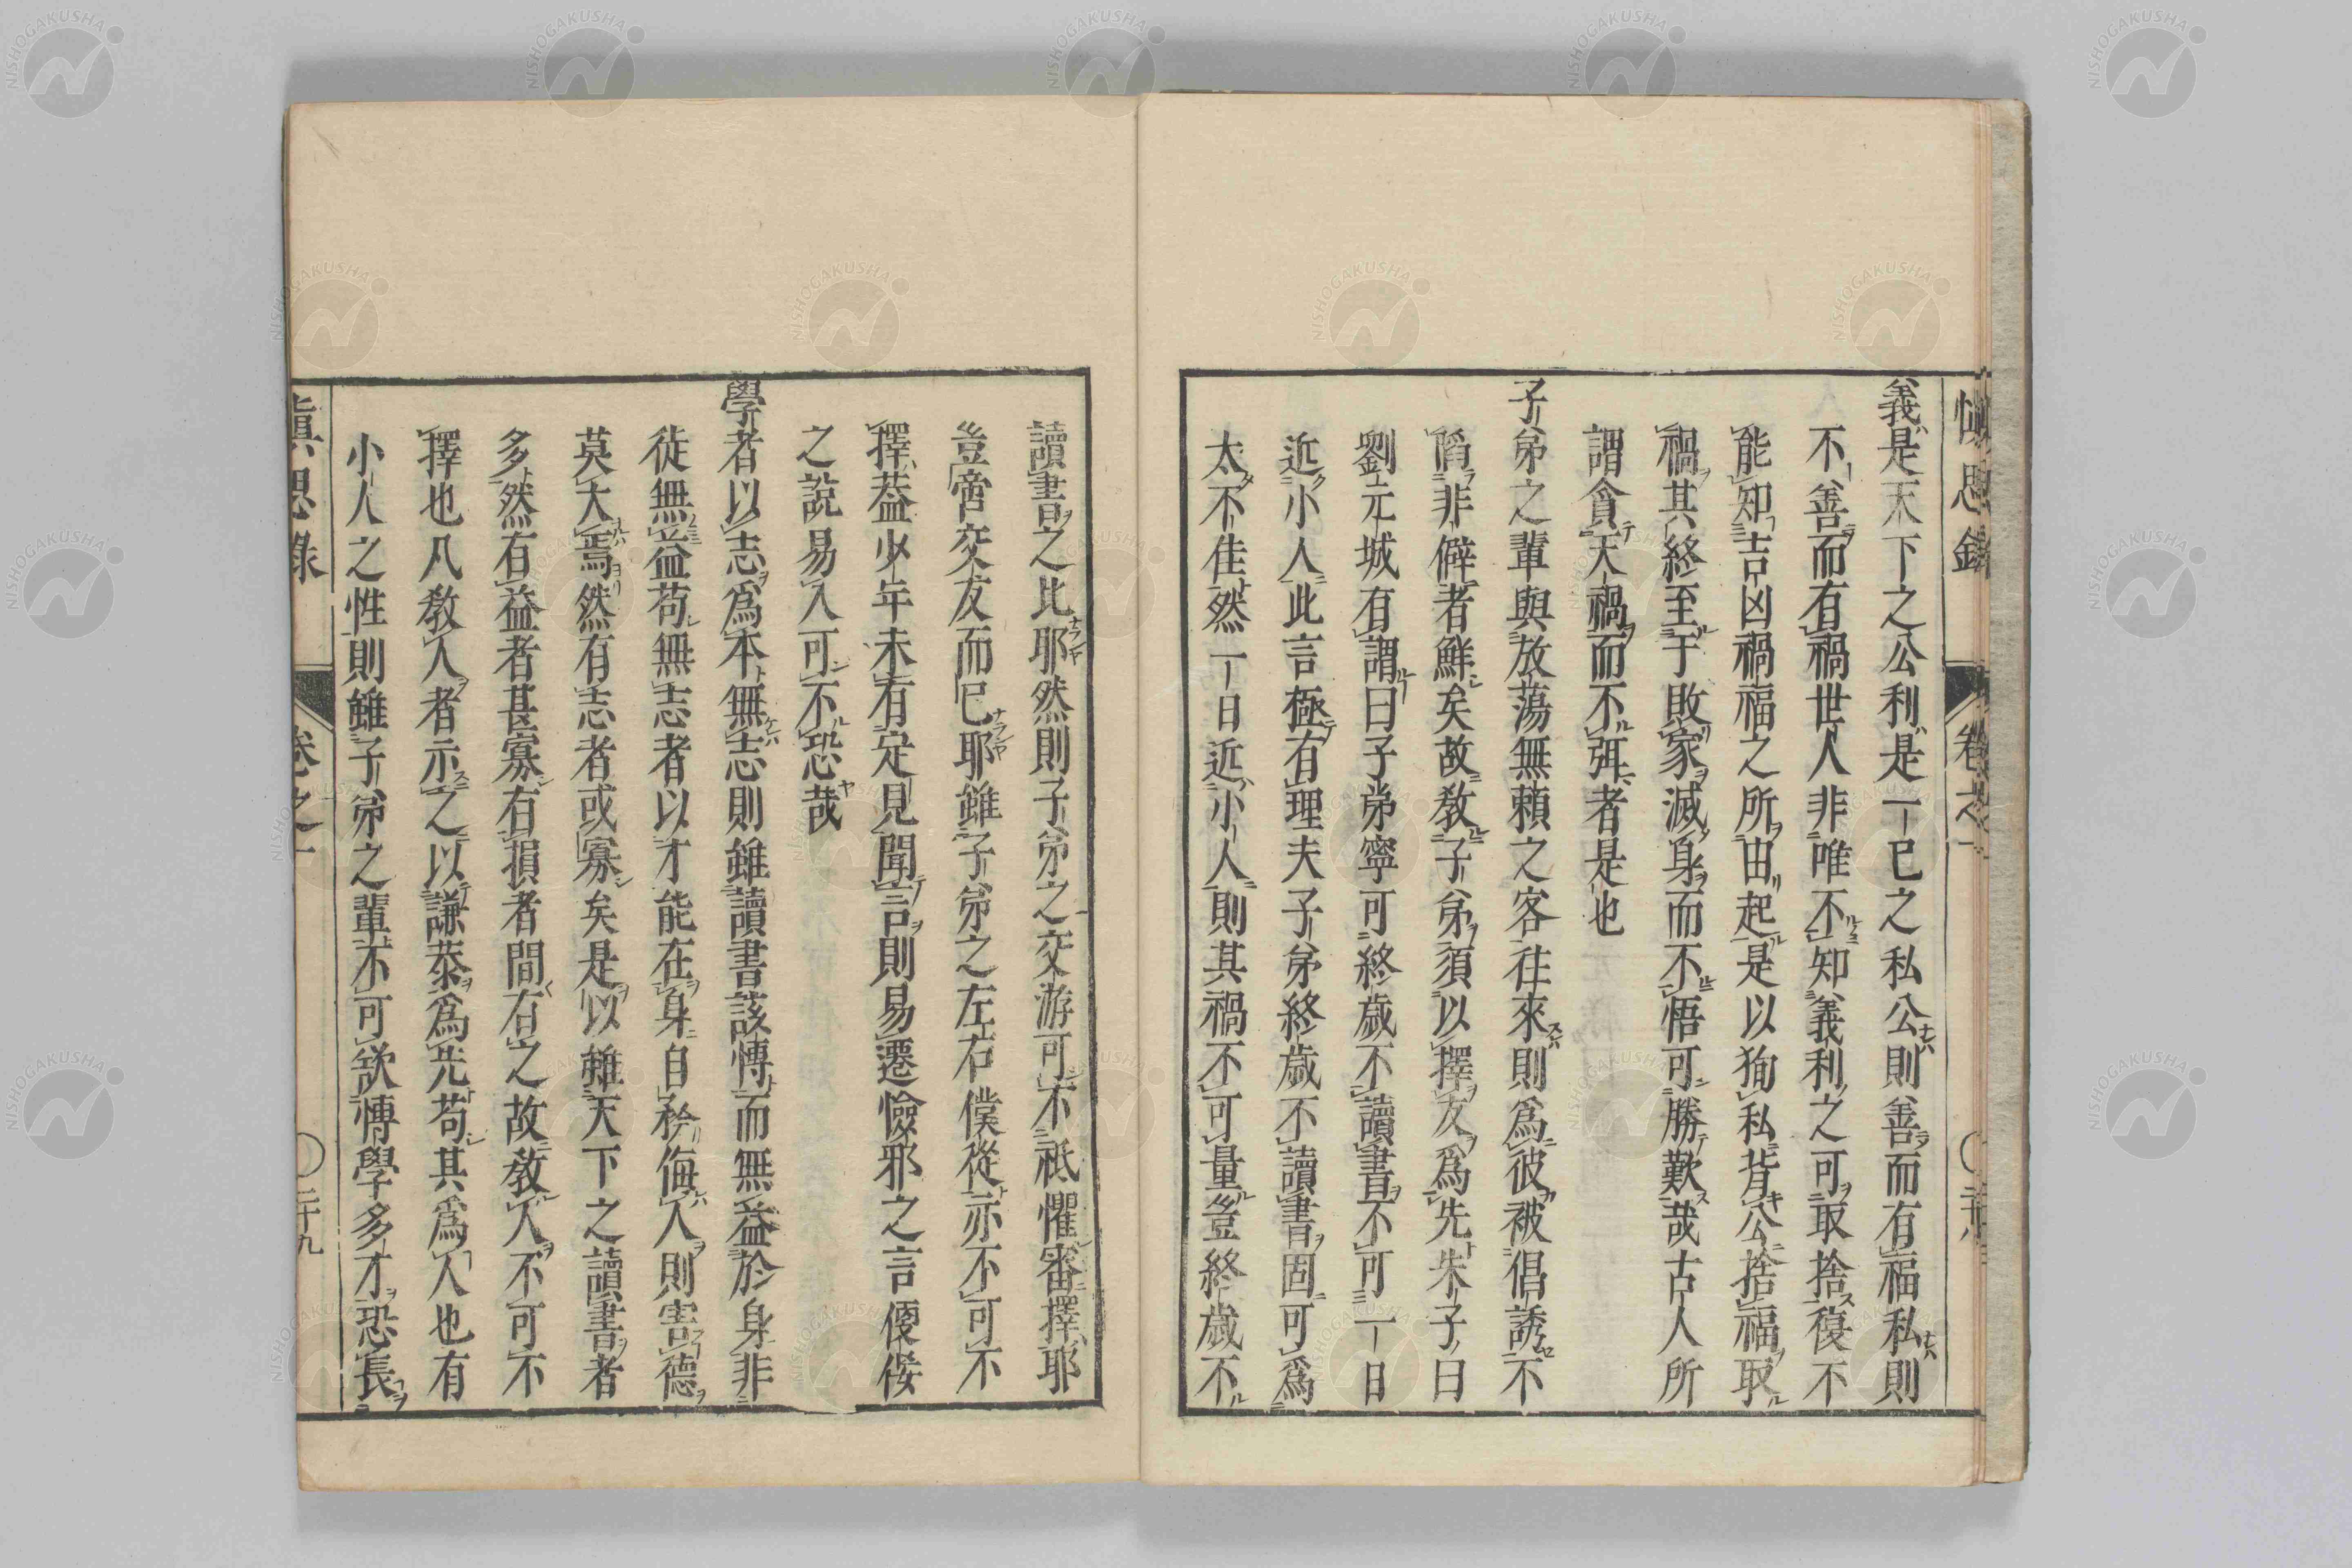 義是天下之公利是一己之私公則善而有福私則
不善而有禍世人非唯不知義利之可取捨復不
能知吉凶禍福之所由起是以狥私背公捨福取
禍其終至于敗家滅身而不悟可勝歎哉古人所
謂貪天禍而不弭者是也
子弟之輩與放蕩無賴之客往來則為彼被倡誘不
陷非僻者鮮矣故教子弟須以擇友為先朱子曰
劉元城有謂曰子弟寧可終歲不讀書不可一日
近小人此言極有理夫子弟終歲不讀書固可為
太不佳然一日近小人則其禍不可量豈終歲不
讀書之比耶然則子弟之交游可不祗懼審擇耶
豈啻交友而已耶雖子弟之左右僕從亦不可不
擇葢少年未有定見聞言則易遷憸邪之言便佞
之說易入可不恐哉
學者以志為本無志則雖讀書該博而無益於身非
徒無益苟無志者以才能在身自矜侮人則害德
莫大焉然有志者或寡矣是以雖天下之讀書者
多然有益者甚寡有損者間有之故教人不可不
擇也凡教人者示之以謙恭為先苟其為人也有
小人之性則雖子弟之輩不可欲博學多才恐長
慎思錄
卷之一
二十九
NISHOGAKUSHA